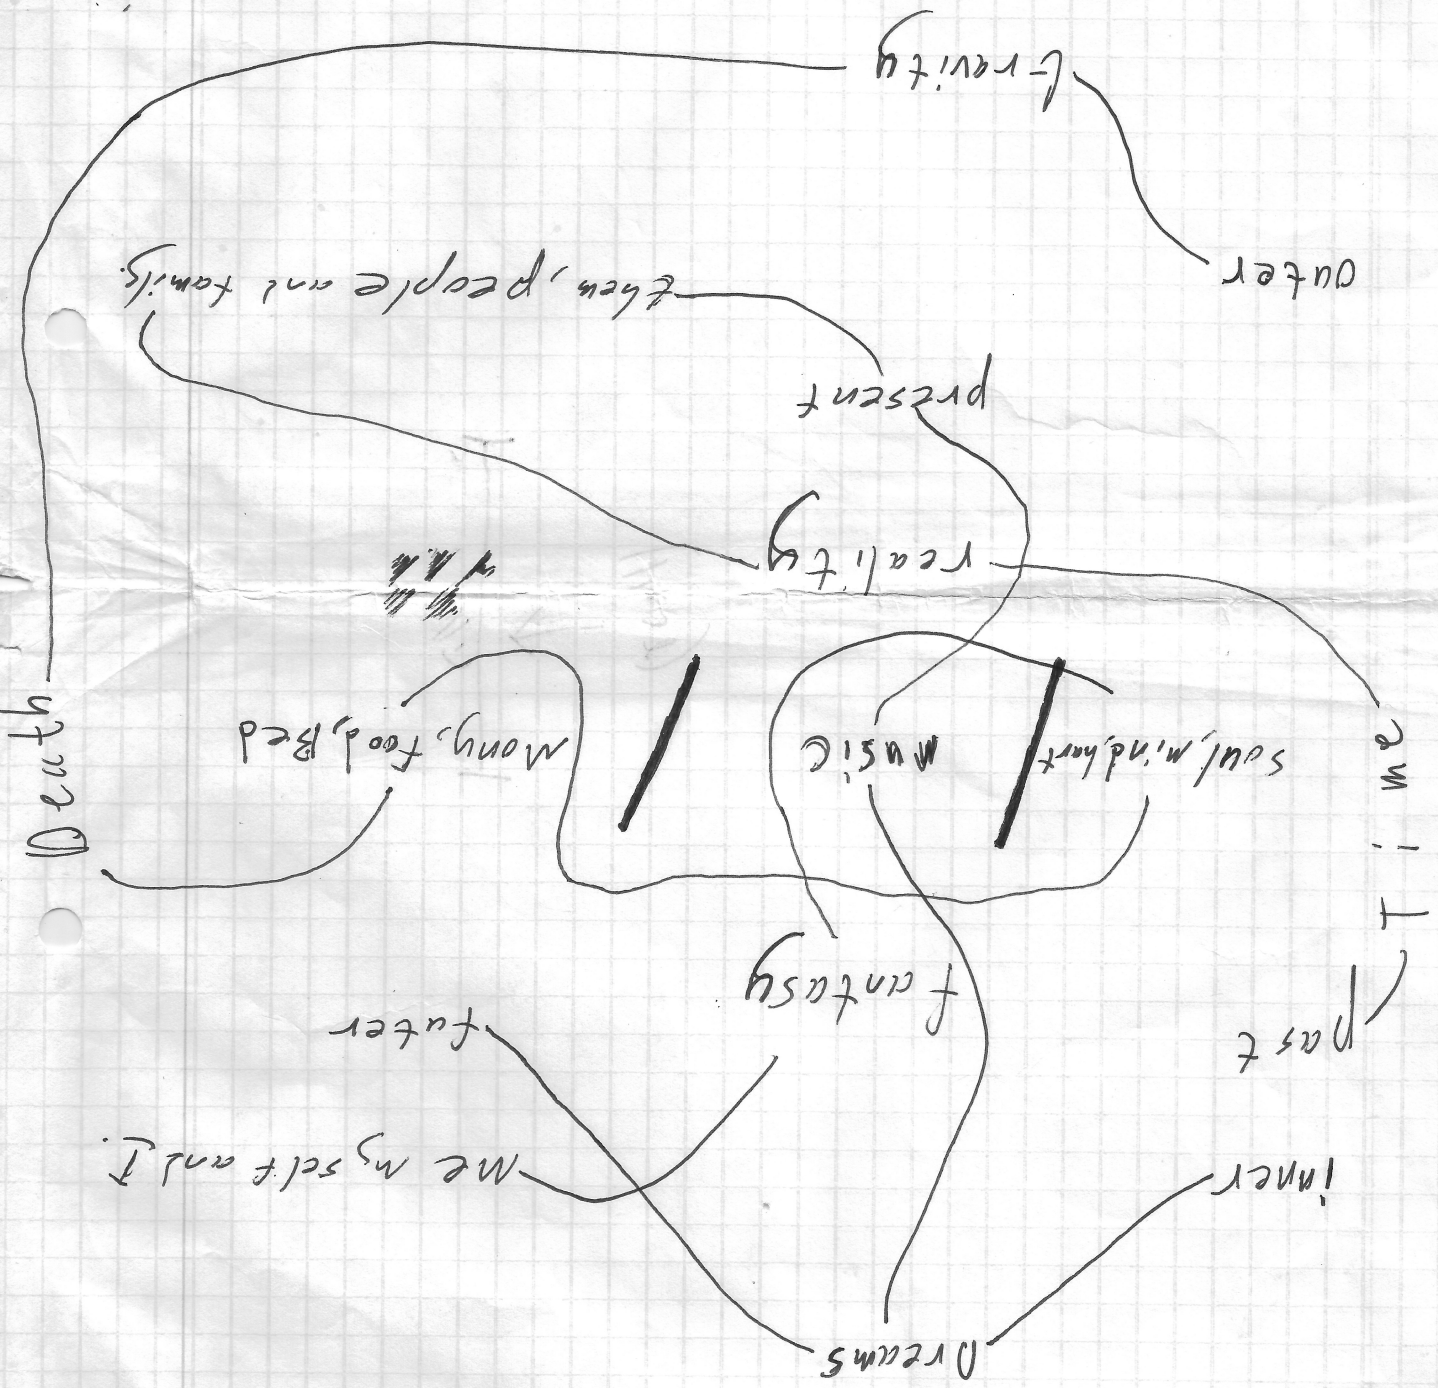 Dreams
inner
me myself and I.
past
futer
fantasy
Time
soul, mind, hart
music
Mony, Food, Bed
Death
reality
present
outer
them, people and family.
Gravity